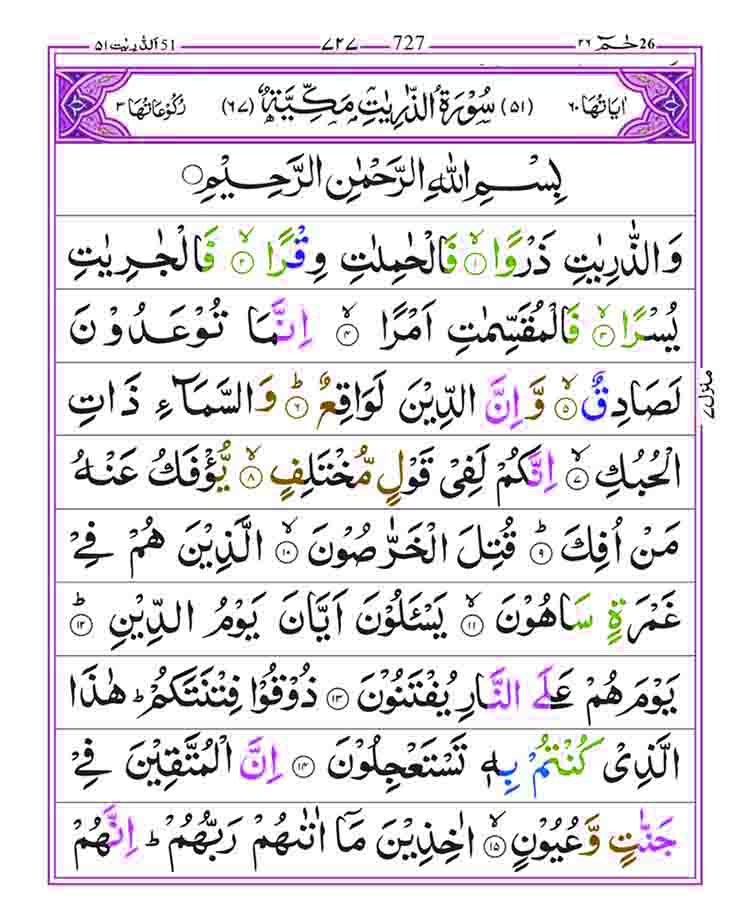 حٰمٓ 26 ٢٦ ٧٢٧ 727 الذّٰریٰت 51 ٥١
اٰیَاتُهَا ٦٠ (٥١) سُوْرَةُ الذّٰرِیٰتِ مَكِّیَّةٌ (٦٧) رُكُوْعَاتُهَا ٣
بِسْمِ اللّٰهِ الرَّحْمٰنِ الرَّحِیْمِ
وَالذّٰرِیٰتِ ذَرْوًا ۙ﴿١﴾ فَالْحٰمِلٰتِ وِقْرًا ۙ﴿٢﴾ فَالْجٰرِیٰتِ
یُسْرًا ۙ﴿٣﴾ فَالْمُقَسِّمٰتِ اَمْرًا ۙ﴿٤﴾ اِنَّمَا تُوْعَدُوْنَ
لَصَادِقٌ ۙ﴿٥﴾ وَّاِنَّ الدِّیْنَ لَوَاقِعٌ ؕ﴿٦﴾ وَالسَّمَآءِ ذَاتِ
الْحُبُكِ ۙ﴿٧﴾ اِنَّكُمْ لَفِیْ قَوْلٍ مُّخْتَلِفٍ ۙ﴿٨﴾ یُّؤْفَكُ عَنْهُ
مَنْ اُفِكَ ؕ﴿٩﴾ قُتِلَ الْخَرّٰصُوْنَ ۙ﴿١٠﴾ الَّذِیْنَ هُمْ فِیْ
غَمْرَةٍ سَاهُوْنَ ۙ﴿١١﴾ یَسْـَٔلُوْنَ اَیَّانَ یَوْمُ الدِّیْنِ ؕ﴿١٢﴾
یَوْمَ هُمْ عَلَی النَّارِ یُفْتَنُوْنَ ﴿١٣﴾ ذُوْقُوْا فِتْنَتَكُمْ ؕ هٰذَا
الَّذِیْ كُنْتُمْ بِهٖ تَسْتَعْجِلُوْنَ ﴿١٤﴾ اِنَّ الْمُتَّقِیْنَ فِیْ
جَنّٰتٍ وَّعُیُوْنٍ ۙ﴿١٥﴾ اٰخِذِیْنَ مَاۤ اٰتٰىهُمْ رَبُّهُمْ ؕ اِنَّهُمْ
منزل ٧